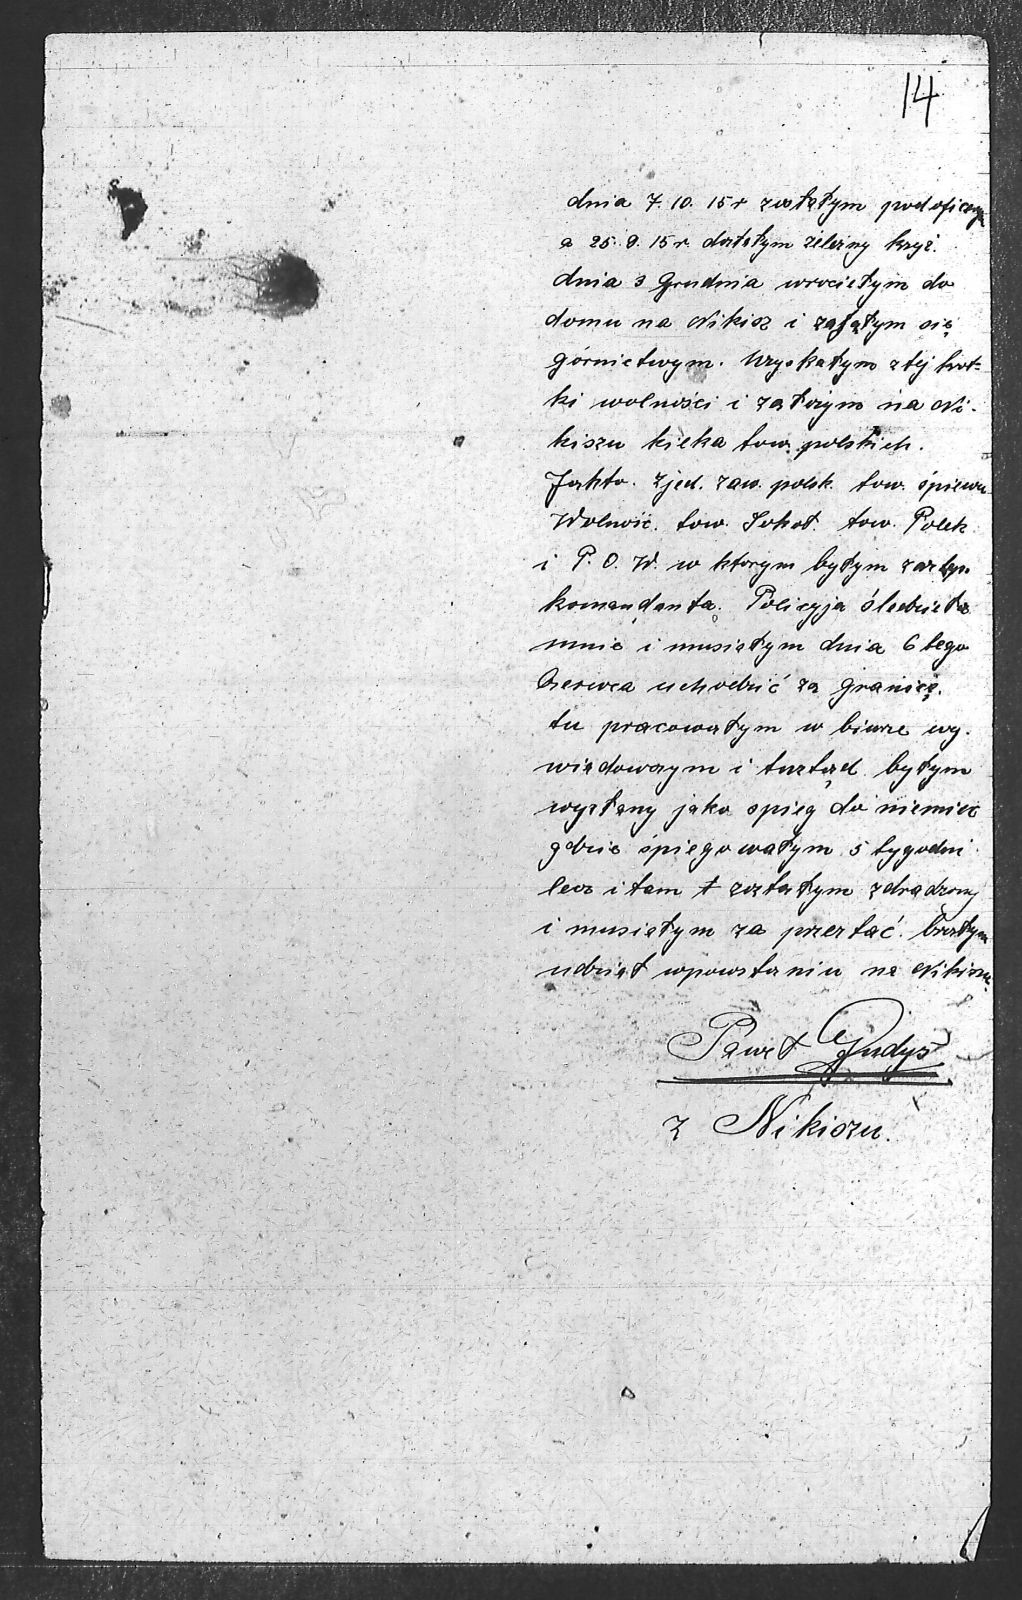 14
dnia 7. 10. 15 r zostałym podoficerym
a 25. 9. 15 r. dostałym żelezny krzyż.
dnia 3 Grudnia wrociełym do
domu na Nikisz i zająłym się
górnictwym. Uzyskałym z tej krot=
ki wolności i założym na Ni-
kiszu kielka tow. polskich.
Jakto. Zjed. zaw. polsk. tow. śpiewu
Wolność. tow. Sokoł. tow. Polek
i P. O. W. w ktorym byłym zastęp.
komendanta. Policyja śledzieła
mnie i musiałym dnia 6 tego
Czerwca uchodzić za granicę.
tu pracowałym w biurze wy-
wiadowczym i tustąd byłym
wysłany jako spieg do niemiec
gdzie śpiegowałym 5 tygodni
lecz i tam zostałym zdradzony
i musiałym za przestać. brałym
udział wpowstaniu na Nikiszu.
Paweł Gudys
z Nikiszu.